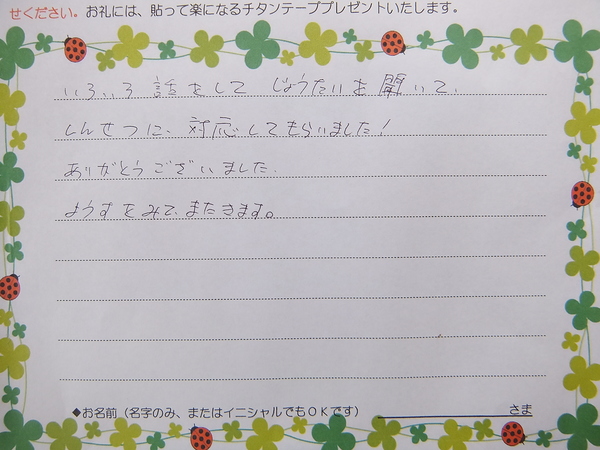 せください。お礼には、貼って楽になるチタンテーププレゼントいたします。
いろいろ 話をして じょうたいを 聞いて、
しんせつに、対応してもらいました!
ありがとうございました。
ようすをみて、またきます。
◆お名前(名字のみ、またはイニシャルでもOKです) さま